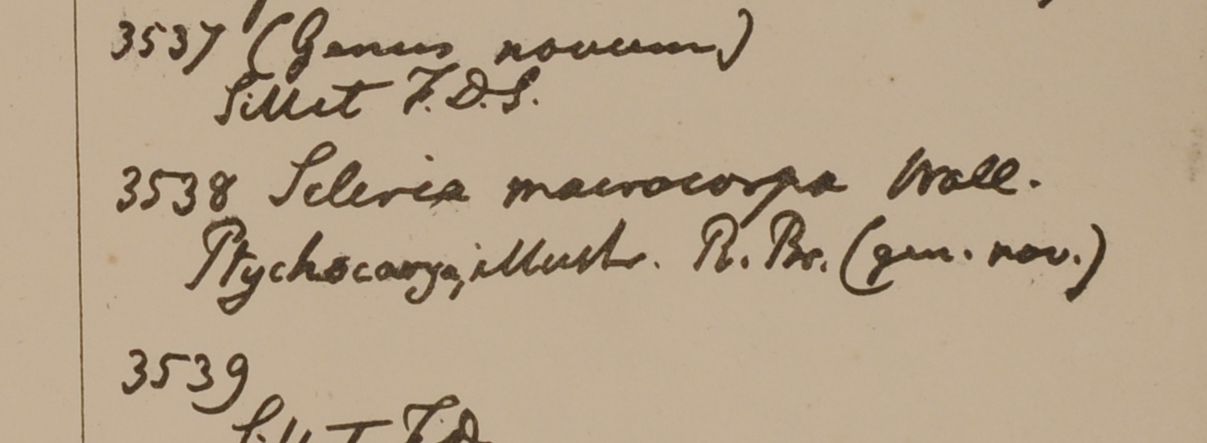 3537 (Genus novum)
Sillet F.D.S.
3538 Scleria macrocarpa Wall.
Ptychocarya, illustr. R. Br. (gen. nov.)
3539
Sillet F.D.